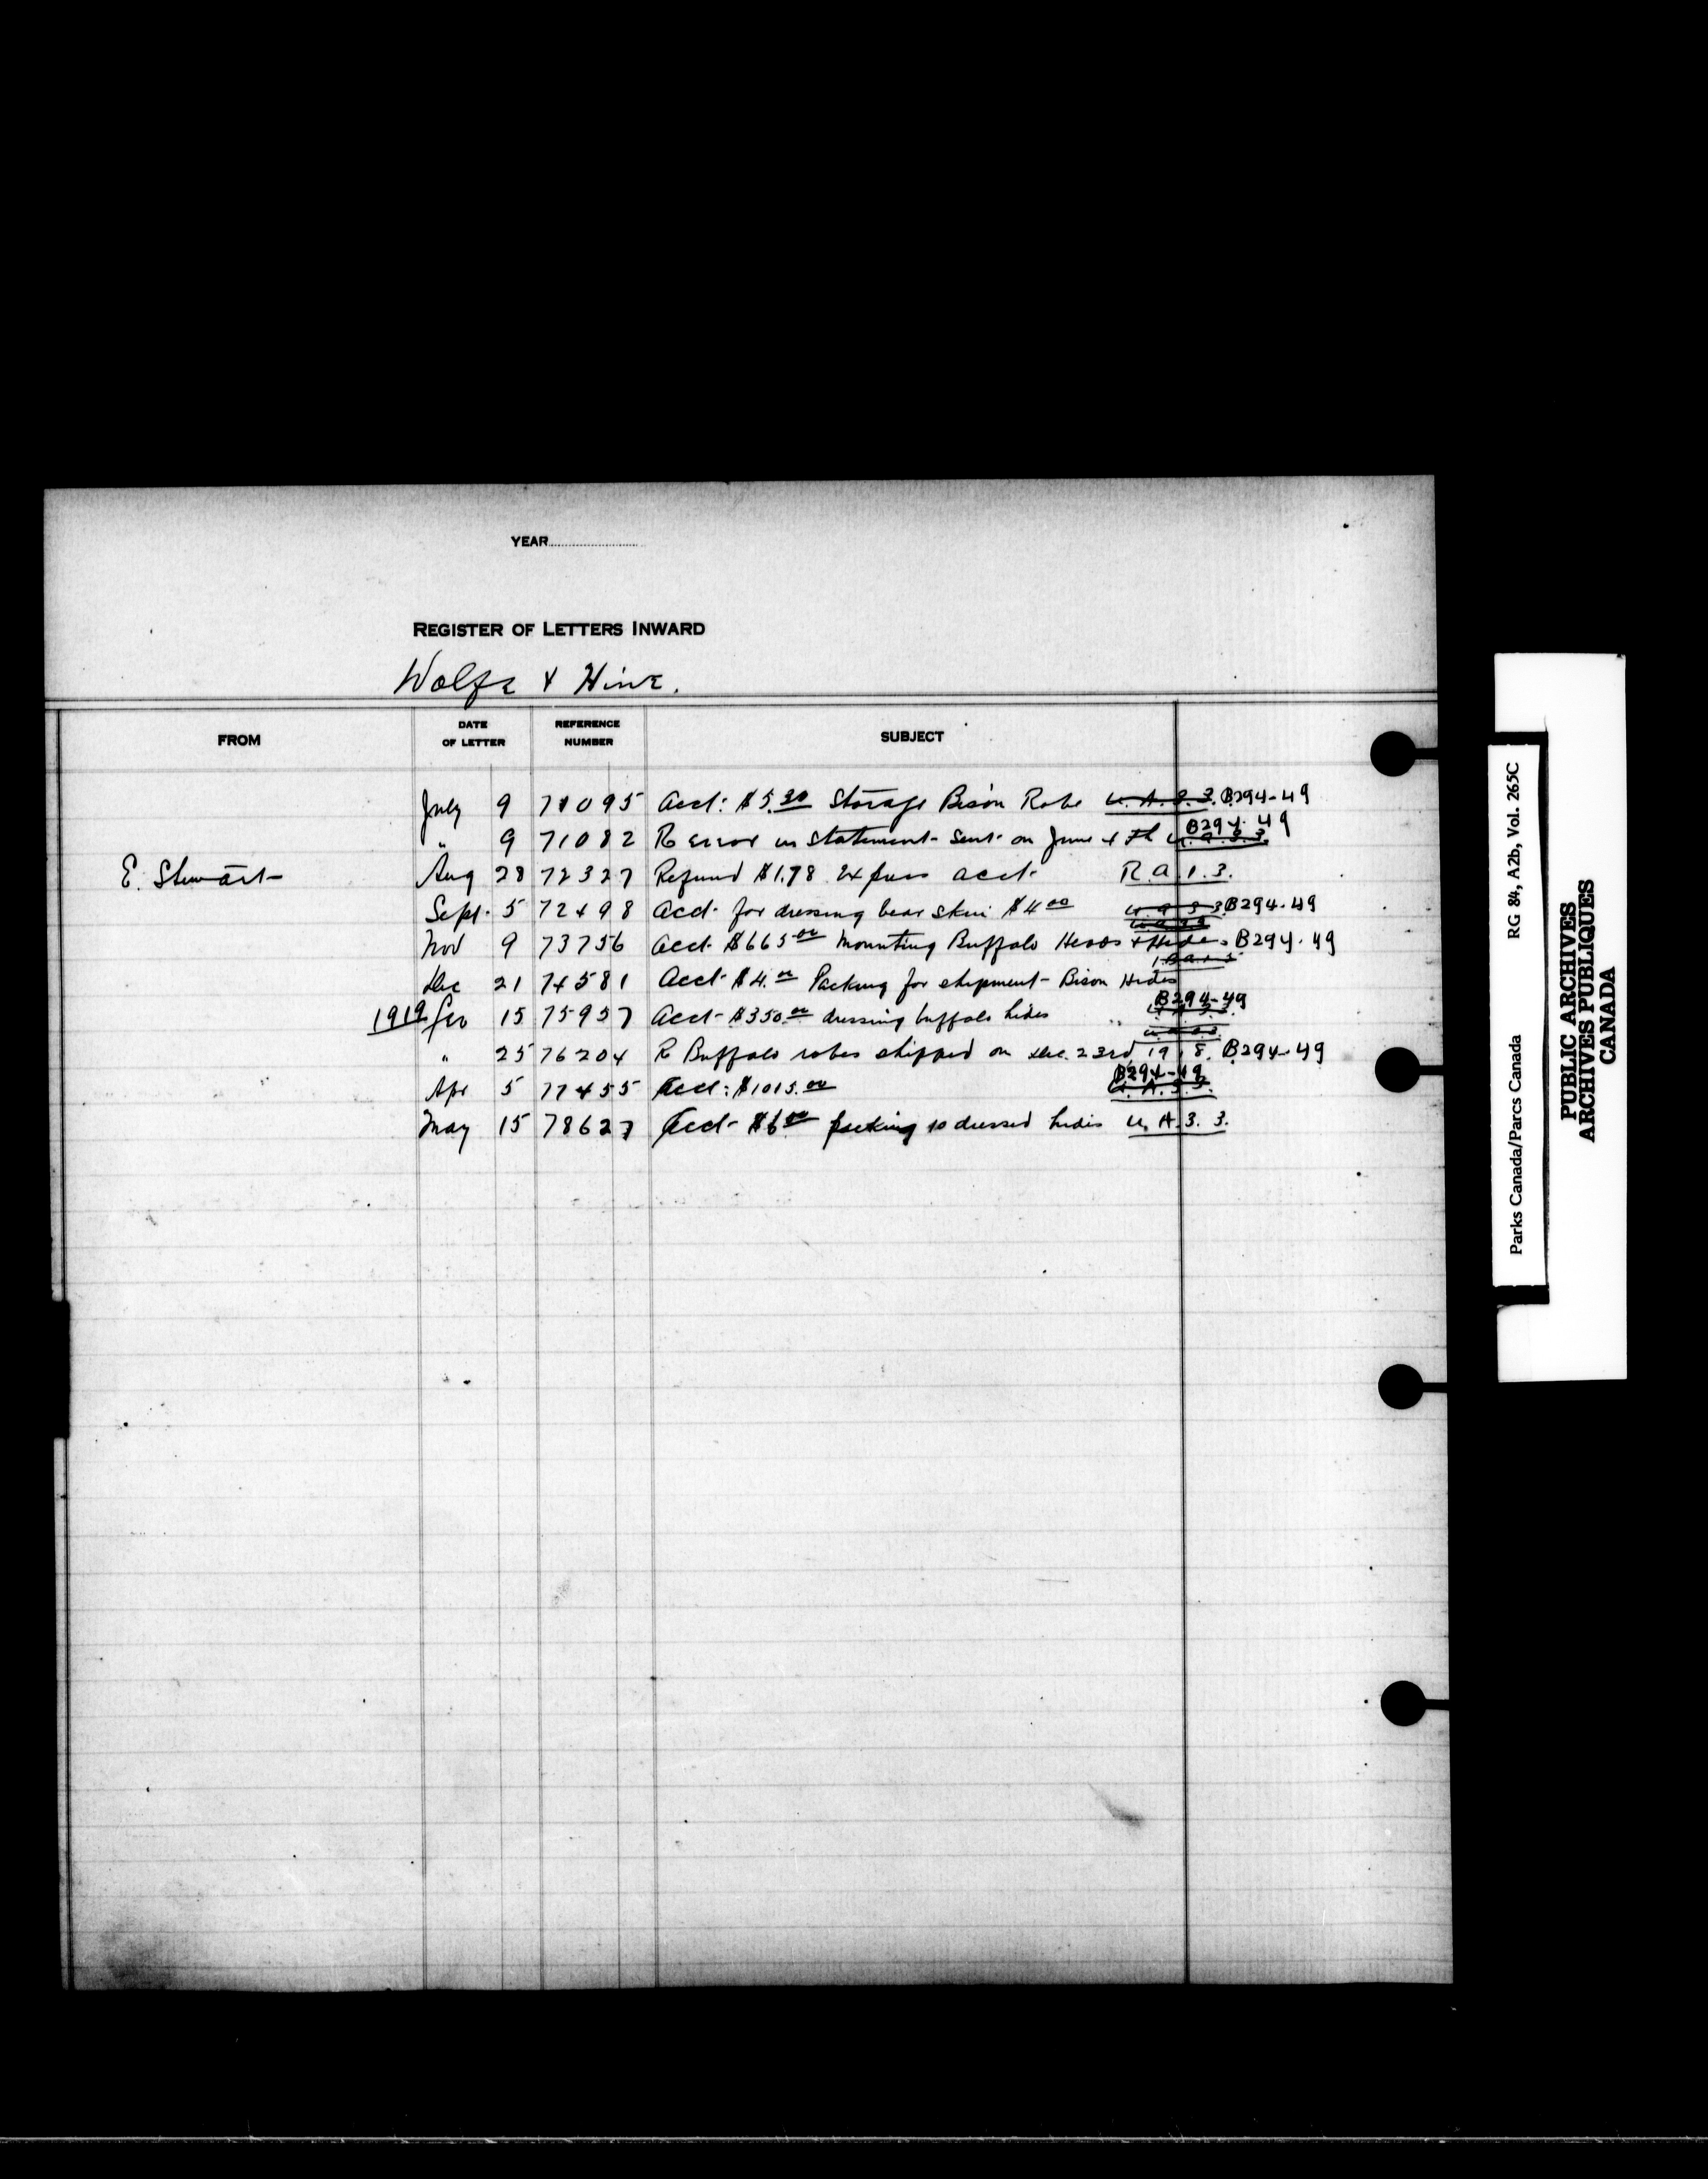 YEAR
REGISTER OF LETTERS INWARD
Wolfe & Hine.
FROM DATE OF LETTER REFERENCE NUMBER SUBJECT
July 9 71095 Acct: $5.30 Storage Bison Robe U.A.3.3. B294-49
" 9 71082 Re error in statement sent on June 4th U.A.3.3. B294-49
E. Stewart Aug 28 72327 Refund $1.78 Express acct. R.A.1.3.
Sept. 5 72498 Acct. for dressing bear skin $4.00 U.A.3.3. B294-49
Nov 9 73756 Acct. $665.00 Mounting Buffalo Heads & Hides B294-49
Dec 21 74581 Acct. $4.00 Packing for shipment Bison Hides
1919 15 75957 Acct. $350.00 dressing buffalo hides B294-49
" 25 76204 Re Buffalo robes shipped on Dec. 23rd, 1918. B294-49
Apr 5 77455 Acct: $1015.00 U.A.3.3. B294-49
May 15 78627 Acct. $6.00 packing 10 dressed hides U.A.3.3.
Parks Canada/Parcs Canada RG 84, A2b, Vol. 265C
PUBLIC ARCHIVES
ARCHIVES PUBLIQUES
CANADA